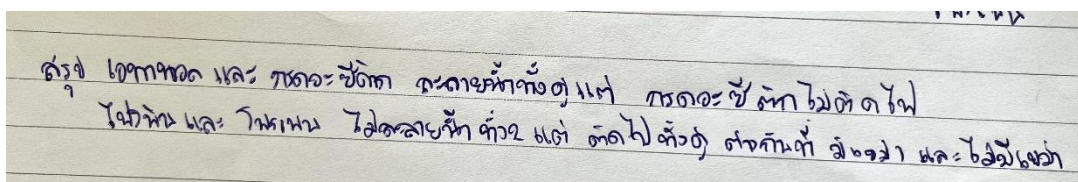 สรุป เอทานอล และ กรดอะซีติก ละลายน้ำทั้งคู่ แต่ กรดอะซีติกไม่ติดไฟ
ไขวัว และ โพรเพน ไม่ละลายน้ำ ทั้ง2 แต่ ติดไฟทั้งคู่ ต่างกันที่ มีเขม่า และ ไม่มีเขม่า